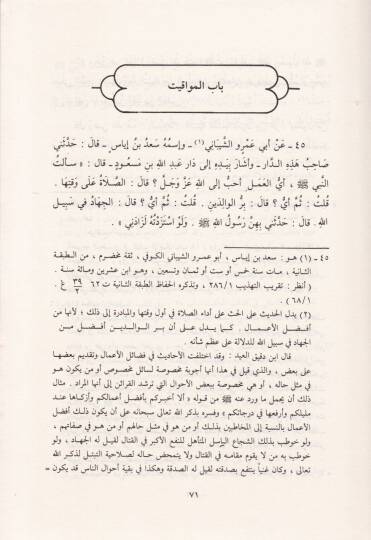 باب المواقيت
٤٥ ـ عَنْ أبي عَمْرٍو الشَّيْبَانِي(١) ـ وإسمُهُ سَعدُ بنُ إياسٍ ـ قالَ : حَدَّثَنِي
صَاحِبُ هَذِهِ الدَّارِ ـ وأشَارَ بِيَدِهِ إلى دَارِ عَبدِ اللهِ بنِ مَسعُودٍ ـ قال : « سألتُ
النَّبي ﷺ ، أيُّ العَمَلِ أحبُّ إلى اللهِ عَزَّ وَجَلَّ ؟ قالَ : الصَّلاةُ عَلَى وَقتِهَا .
قُلْتُ : ثُمَّ أيُّ ؟ قالَ : بِرُّ الوالدَينِ . قُلْتُ : ثُمَّ أيُّ ؟ قالَ : الجِهَادُ في سَبِيلِ
اللهِ . قالَ : حَدَّثَنِي بِهِنَّ رَسُولُ اللهِ ﷺ . وَلَوْ اسْتَزَدْتُهُ لَزَادَنِي » .
٤٥ ـ (١) هـو : سعد بن إياس ، أبو عمرو الشيباني الكوفي ، ثقة مخضرم ، من الطبقة
الثانية ، مات سنة خمس أو ست أو ثمان وتسعين ، وهو ابن عشرين ومائة سنة .
( أنظر : تقريب التهذيب ٢٨٦/١ ، وتذكره الحفاظ الطبقة الثانية ت ٦٢ ٣٩/٢ ع .
٦٨/١ )
(٢) يدل الحديث على الحث على أداء الصلاة في أول وقتها والمبادرة إلى ذلك ؛ لأنها من
أفضـل الأعمـال . كمـا يـدل على أن بـر الـوالـدين أفضـل مـن
الجهاد في سبيل الله للدلالة على عظم شأنه .
قال ابن دقيق العيد : وقد اختلفت الأحاديث في فضائل الأعمال وتقديم بعضها
على بعض ، والذي قيل في هذا أنها أجوبة مخصوصة لسائل مخصوص أو من يكون هو
في مثل حاله ، أو هي مخصوصة ببعض الأحوال التي ترشد القرائن إلى أنها المراد . مثال
ذلك أن يحمل ما ورد عنه ﷺ من قوله « ألا أخبركم بأفضل أعمالكم وأزكاها عند
مليككم وأرفعها في درجاتكم » وفسره بذكر الله تعالى سبحانه على أن يكون ذلك أفضل
الأعمال بالنسبة إلى المخاطبين بذلك أو من هو في مثل حالهم أو من هو في صفاتهم ،
ولو خوطب بذلك الشجاع الباسل المتأهل للنفع الأكبر في القتال لقيل له الجهاد ، ولو
خوطب به من لا يقوم مقامه في القتال ولا يتمحض حاله لصلاحية التبتل لذكر الله
تعالى ، وكان غنياً ينتفع بصدقته لقيل له الصدقة وهكذا في بقية أحوال الناس قد يكون =
٧١